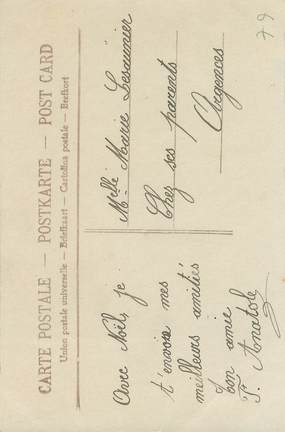 CARTE POSTALE — POSTKARTE — POST CARD
Union postale universelle — Briefkaart — Cartolina postale — Brefkort
Avec Noël, je
t'envoie mes
meilleurs amitiés
bon amie
P. Anatole
Melle Marie Lesaunier
Chez ses parents
Argences
79